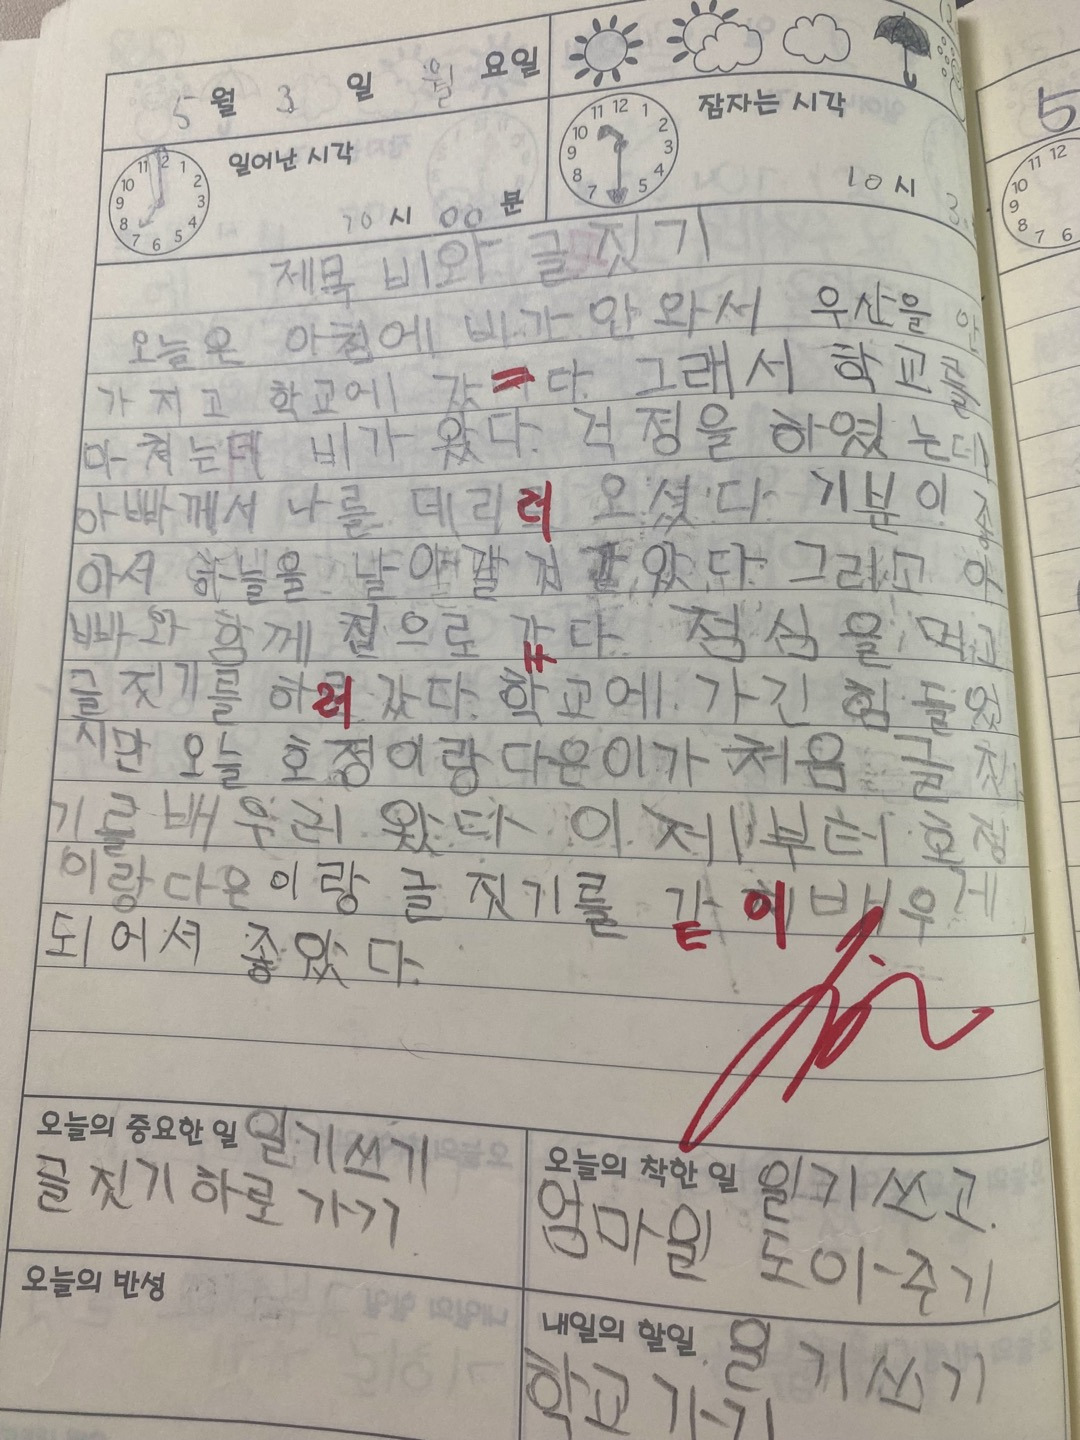 5 월 3 일 월 요일
일어난 시각
10 시 00 분
잠자는 시각
10 시
제목 비와 글짓기
오늘은 아침에 비가 안 와서 우산을 안
가지고 학교에 갔다. 그래서 학교를
마쳐는데 비가 왔다. 걱정을 하였는데
아빠께서 나를 데리러 오셨다. 기분이 좋
아서 하늘을 날아갈 것 같았다. 그리고 아
빠와 함께 집으로 갔다. 점심을 먹고
글짓기를 하러 갔다. 학교에 가긴 힘들었
지만 오늘 호정이랑 다은이가 처음 글짓
기를 배우러 왔다 이제부터 호정
이랑 다은이랑 글짓기를 같이 배우게
되어서 좋았다.
오늘의 중요한 일 일기쓰기
글짓기 하로 가기
오늘의 착한 일 일기 쓰고
엄마일 도아주기
오늘의 반성
내일의 할일 일기쓰기
학교 가기